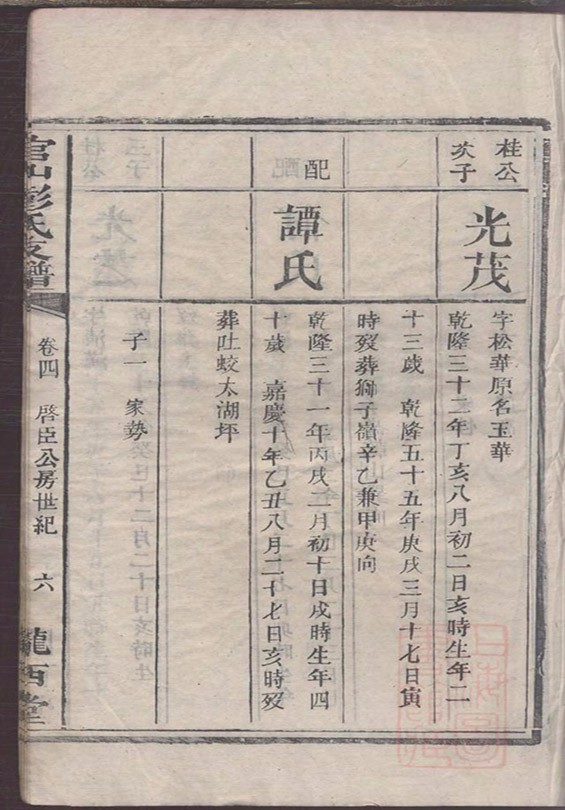 桂公
次子
光茂
字松華原名玉華
乾隆三十二年丁亥八月初二日亥時生年二
十三歲 乾隆五十五年庚戌三月十七日寅
時歿葬獅子嶺辛乙兼甲庚向
配
譚氏
乾隆三十一年丙戌二月初十日戌時生年四
十歲 嘉慶十年乙丑八月二十七日亥時歿
葬吐蛟太湖坪
子一 家勢
彭氏支譜
卷四 啓臣公房世紀 六
隴西堂